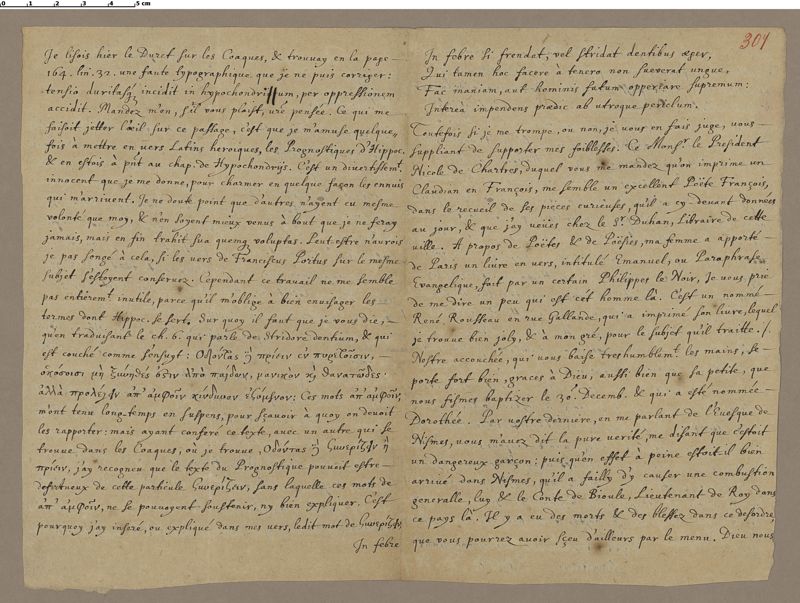 0 1 2 3 4 5 cm
301
Je lisois hier le Duret sur les Coaques, & trouvay en la page
164. lin. 32. une faute typographique que je ne puis corriger:
tensio duritasq, incidit in hypochondrium, per oppressionem
accidit. Mandez m'en, s'il vous plaist, vre pensée. Ce qui me
faisoit jetter l'œil sur ce passage, c'est que je m'amuse quelque=
fois à mettre en vers Latins heroiques, les Prognostiques d'Hippoc.
& en estois à pnt au chap. de Hypochondrijs. C'est un divertissemt.
innocent que je me donne, pour charmer en quelque façon les ennuis
qui m'arrivent. Je ne doute point que d'autres n'ayent eu mesme
volonté que moy, & n'en soyent mieux venus à bout que je ne feray
jamais, mais en fin trahit sua quemq voluptas. Peut estre n'aurois
je pas songé à cela, si les vers de Franciscus Portus sur le mesme
subjet s'estoyent conservez. Cependant ce travail ne me semble
pas entièremt. inutile, parce qu'il m'oblige à bien envisager les
termes dont Hippoc. se sert. Sur quoy il faut que je vous die,
qu'en traduisant le ch. 6. qui parle de stridore dentium, & qui
est couché comme s'ensuyt: Ὀδόντας ἢ πρίειν ἐν πυρετοῖσιν,
ὁκόσοισι μὴ ξύνηθές ἐστιν ἀπὸ παίδων, μανικὸν κὴ θανατῶδες:
ἀλλὰ προλέγειν ἀπ' ἀμφοῖν κίνδυνον ἐσόμενον: Ces mots ἀπ' ἀμφοῖν,
m'ont tenu long-temps en suspens, pour sçavoir à quoy on devoit
les rapporter: mais ayant conferé ce texte, avec un autre qui se
trouve dans les Coaques, où je trouve, Ὀδόντας ἢ ξυνερίζειν ἢ
πρίειν, j'ay recogneu que le texte du Prognostique pouvoit estre
defectueux de cette particule ξυνερίζειν, sans laquelle ces mots de
ἀπ' ἀμφοῖν, ne se pouvoyent soustenir, ny bien expliquer. C'est
pourquoy j'ay inseré, ou expliqué dans mes vers, ledit mot de ξυνερίζειν
In febre
In febre si frendat, vel stridat dentibus æger,
Qui tamen hoc facere à tenero non sueverat ungue,
Fac maniam, aut hominis fatum oppertare supremum:
Interea impendens prædic ab utroque periclum.
Toutefois si je me trompe, ou non, je vous en fais juge, vous
suppliant de supporter mes foiblesses. Ce Monsr. le President
Nicole de Chartres, duquel vous me mandez qu'on imprime un
Claudian en François, me semble un excellent Poëte François,
dans le recueil de ses pieces curieuses, qu'il a cy devant données
au jour, & que j'ay veües chez le Sr. Duhan, Libraire de cette
ville. A propos de Poëtes & de Poësies, ma femme a apporté
de Paris un livre en vers, intitulé Emanuel, ou Paraphrase
Evangelique, fait par un certain Philippes le Noir, Je vous prie
de me dire un peu qui est cet homme là. C'est un nommé
René Rousseau en rue Gallande, qui a imprimé son livre, lequel
je trouve bien joly, & à mon gré, pour le subjet qu'il traitte. /.
Nostre accouchée, qui vous baise treshumblemt. les mains, se
porte fort bien, graces à Dieu, aussi bien que sa petite, que
nous fismes baptizer le 30. Decemb. & qui a esté nommée
Dorothée. Par vostre derniere, en me parlant de l'Evesque de
Nismes, vous m'avez dit la pure verité, me disant que c'estoit
un dangereux garçon: puis qu'en effet à peine estoit il bien
arrivé dans Nismes, qu'il a failly d'y causer une combustion
generalle, luy & le Conte de Bioule, Lieutenant de Roy dans
ce pays là. Il y a eu des morts & des blessez dans ce desordre,
que vous pourrez avoir sçeu d'ailleurs par le menu. Dieu nous